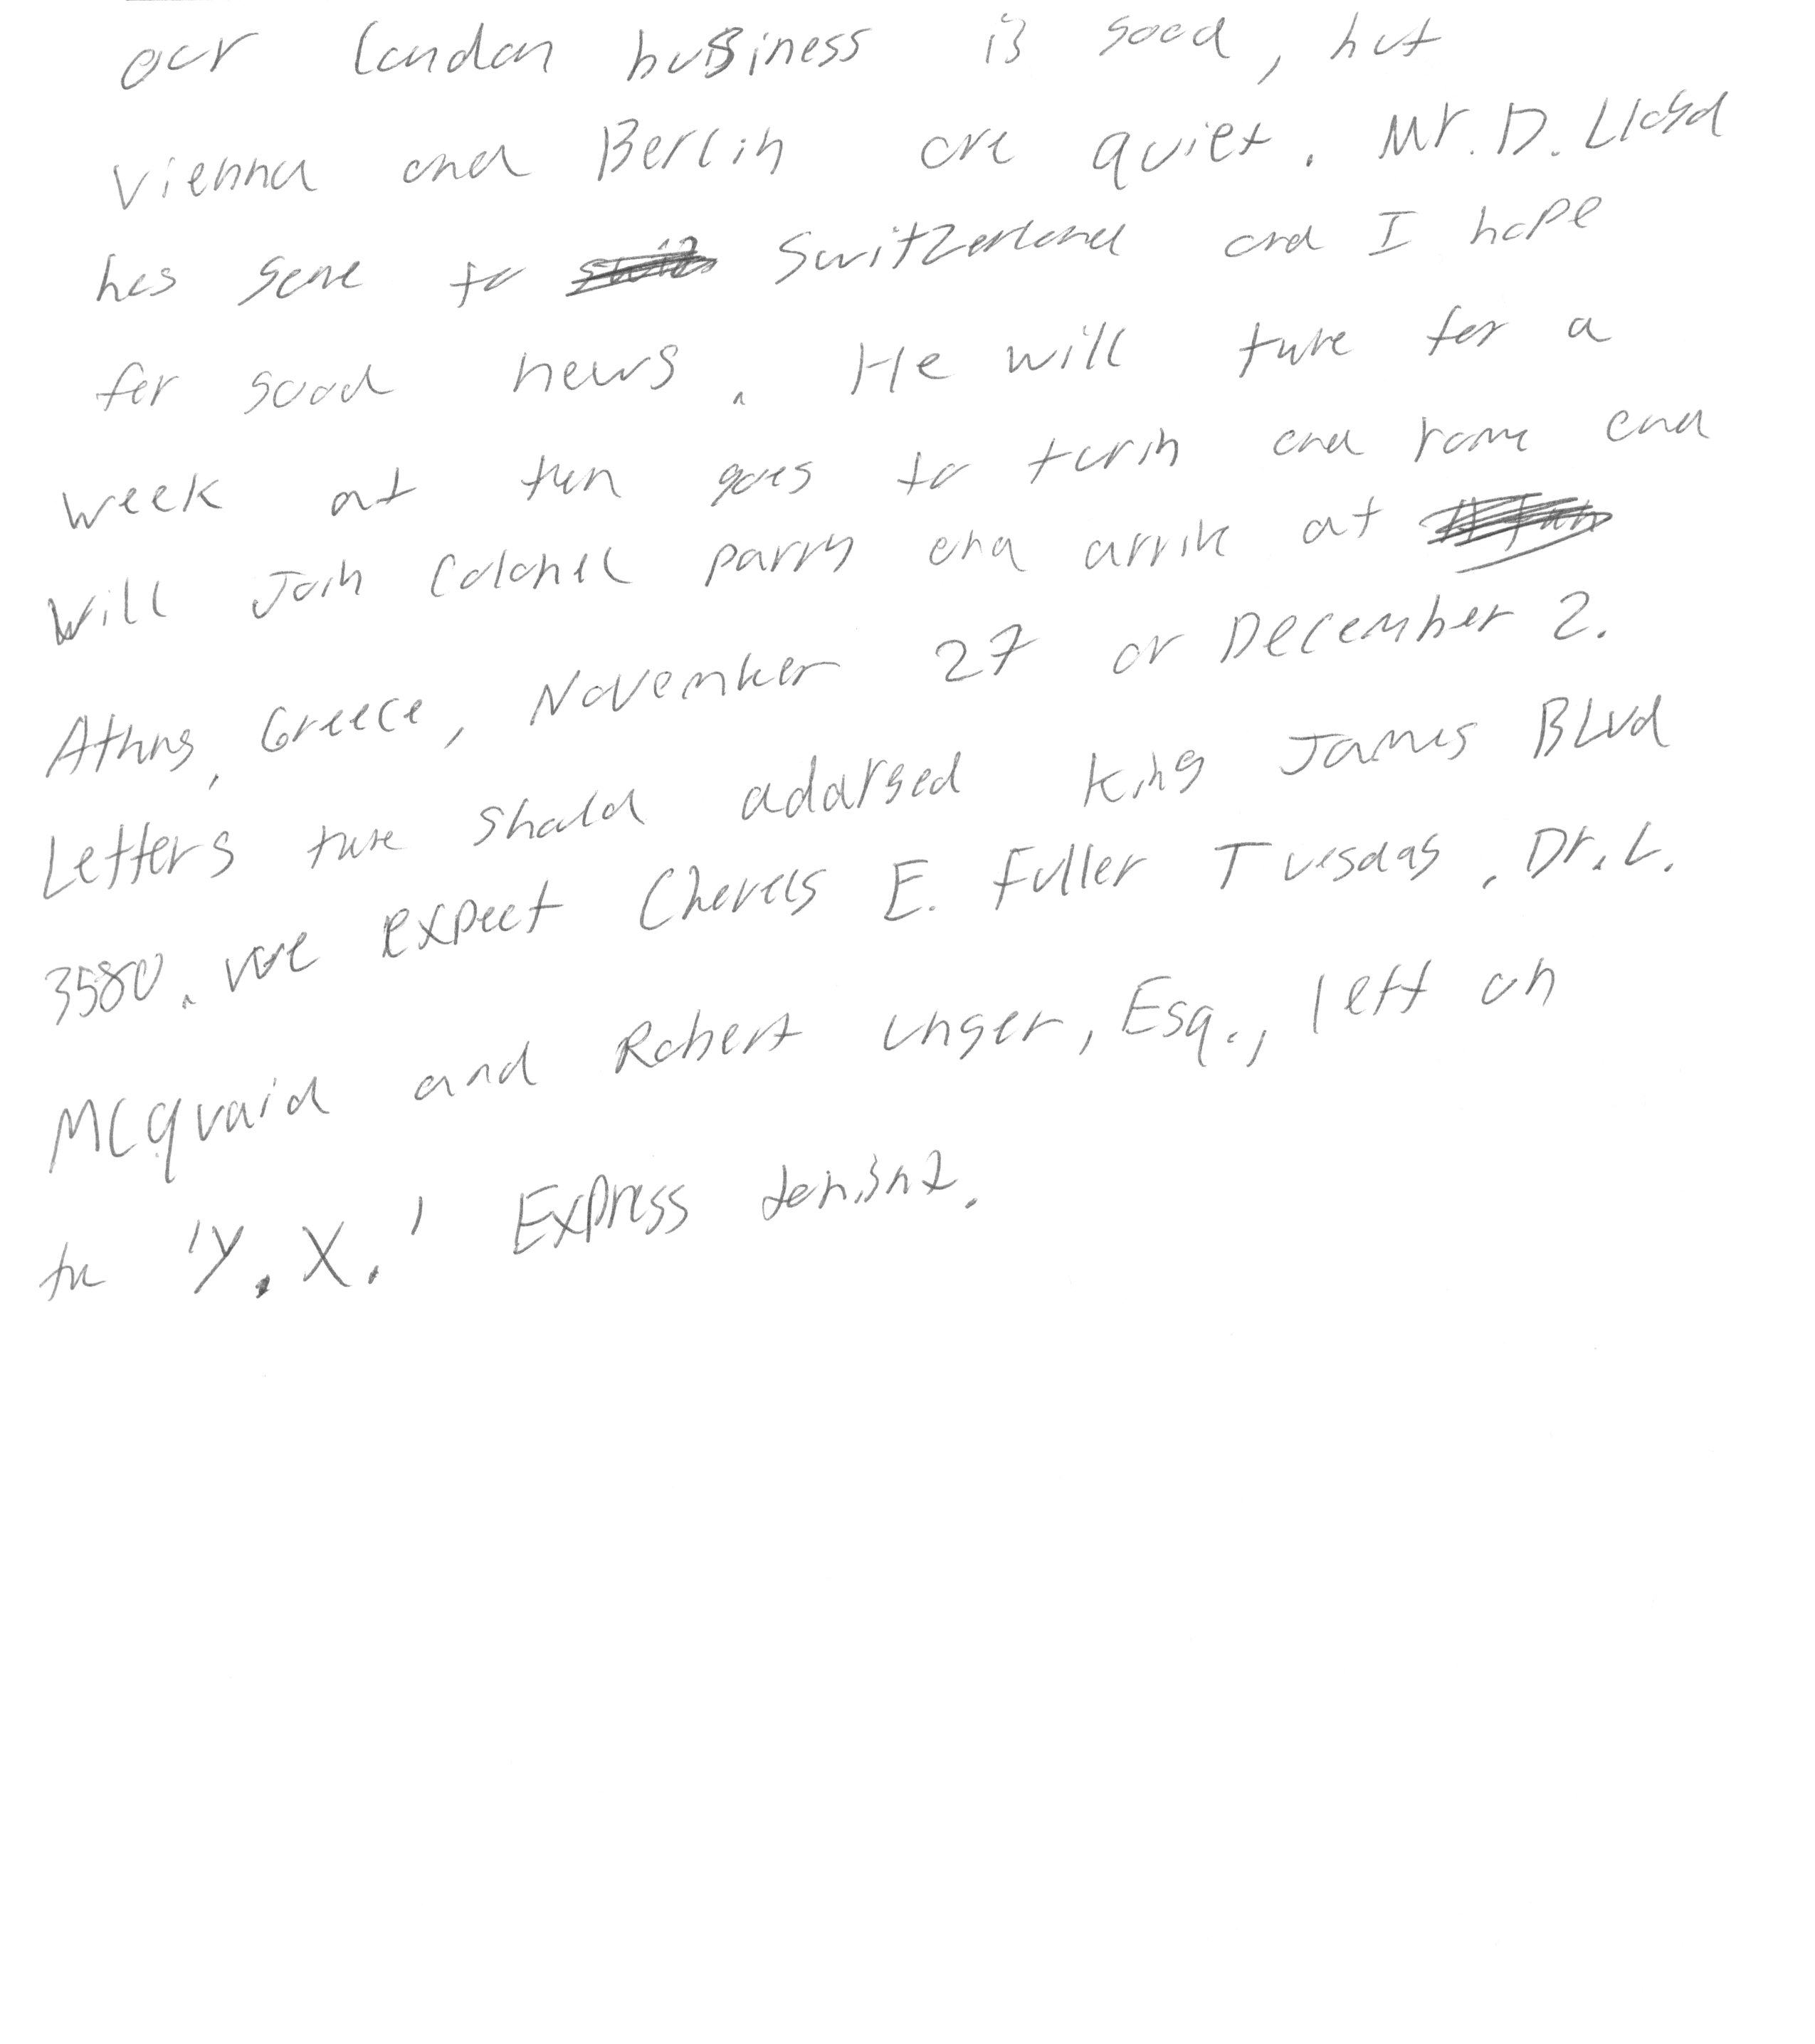 our london bussiness is good, but
vienna and Berlin are quiet. Mr. D. Lloyd
has gone to Switzerland and I hope
for good news. He will there for a
week at then goes to turin and rome and
will Join Colonel parry and arrive at
Athens, Greece, November 27 or December 2.
Letters there should adarsed King James BLvd
3580. We expect Charels E. Fuller Tuesday. Dr. L.
McQuaid and Robert unger, Esq., left on
the 'Y. X.' Express tonight.